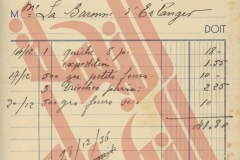 M Mr La Baronne d'Erlanger
DOIT
10/12 1 quiche 5 p. 18 -
expédition 1.55
17/12 300 grs petits fours 10 -
2 Brioches 2.25
20/12 300 grs fours secs 10 -
41.80
23/12/36